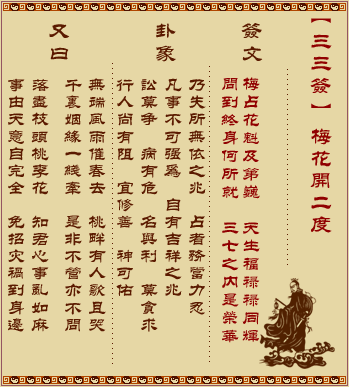 【三三簽】 梅花開二度
簽文
梅占花魁及第巍 天生福祿祿同輝
問到終身何所就 三七之內是榮華
卦象
乃失所無依之兆 占者務當力忍
凡事不可強爲 自有吉祥之兆
訟莫爭 病有危 名與利 莫貪求
行人尚有阻 宜修善 神可佑
又曰
無端風雨催春去 桃畔有人歌且哭
千里姻緣一綫牽 是非不管亦不問
落盡枝頭桃李花 知君心事亂如麻
事由天意自完全 免招災禍到身邊